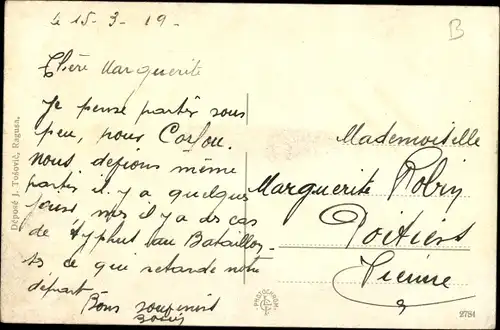 le 15-3-19-
B
Chère Marguerite
Je pense partir sous
peu, pour Corfou.
Nous devions même
partir il y a quelques
jours mes il y a des cas
de typhus au Bataillon
ce qui retarde notre
départ
Bons souvenirs
Mademoiselle
Marguerite Robin
Poitiers
Vienne
Déposé J. Tošović, Ragusa.
PHOTOCHROM
2751